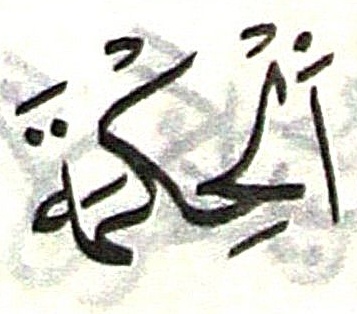 اَلْحِكْمَةَ